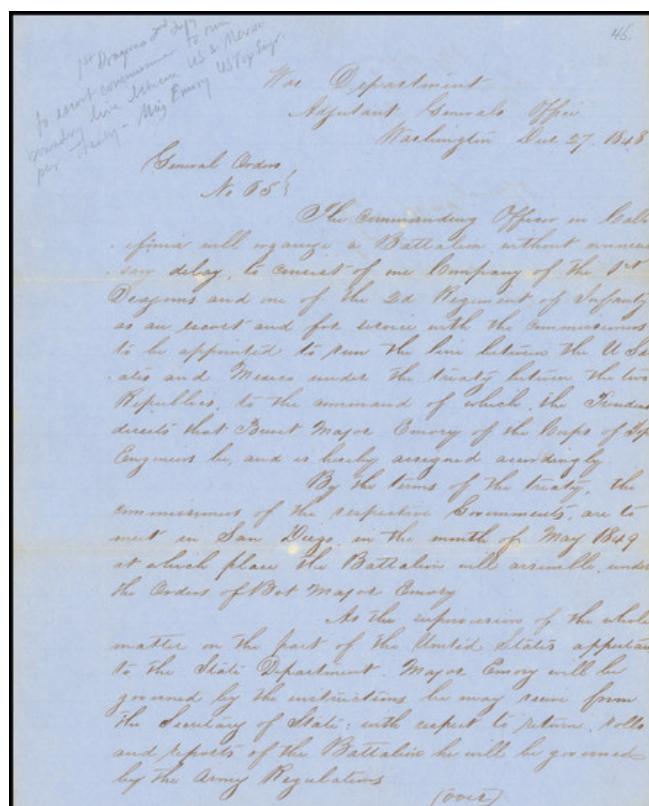 46.
1st Dragoons 2nd Infy
to escort commissioner to run
boundary line between US & Mexico
per Treaty - Maj Emory US Top Engr.
War Department
Adjutant Generals Office
Washington Dec 27. 1848
General Orders
No 65
The Commanding Officer in Cali
fornia will organize a Battalion without unneces
sary delay, to consist of one Company of the 1st
Dragoons and one of the 2d Regiment of Infantry
as an escort and for service with the Commissioners
to be appointed to run the line between the U St
ates and Mexico under the treaty between the two
Republics, to the command of which, the President
directs that Brevet Major Emory of the Corps of Top
Engineers be, and is hereby assigned accordingly.
By the terms of the treaty, the
commissioners of the respective Governments, are to
meet in San Diego, in the month of May 1849
at which place the Battalion will assemble, under
the Orders of Bvt Major Emory
As the supervision of the whole
matter on the part of the United States appertains
to the State Department. Major Emory will be
governed by the instructions he may receive from
the Secretary of State: with respect to return, rolls
and reports of the Battalion he will be governed
by the Army Regulations
(over)